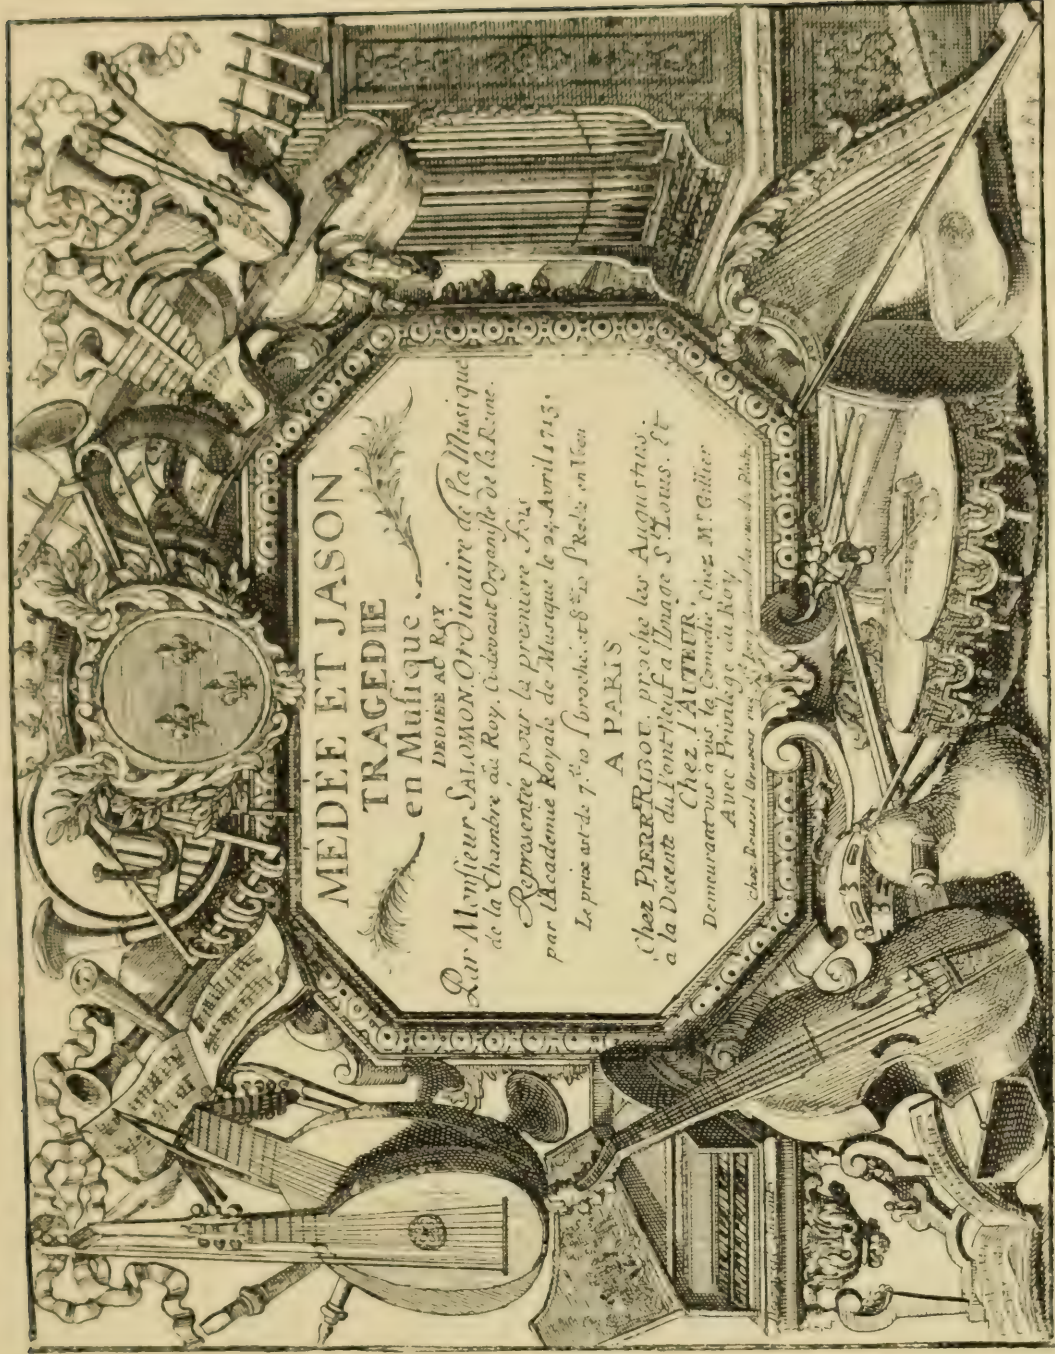 MÉDÉE ET JASON
TRAGEDIE
en Musique
DEDIÉE AU ROY
Par Monsieur SALOMON, Ordinaire de la Musique
de la Chambre du Roy, Cydevant Organiste de la Reine.
Representée pour la premiere fois
par l'Academie Royale de Musique le 24. Avril 1713.
Le prix est de 7.tt 10 s broché, et 8.tt 10 s Relié en Veau
A PARIS
Chez PIERRE RIBOU, proche les Augustins.
a la Decente du Pont-Neuf a l'Image St. Louis. Et
Chez l'AUTEUR,
Demeurant vis a vis la Comedie chez Mr. Gillier
Avec Privilege du Roy
chez